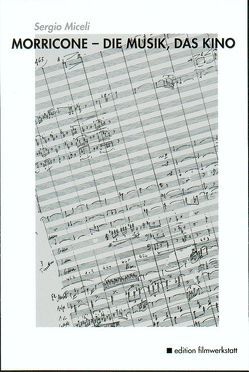 Sergio Miceli
MORRICONE – DIE MUSIK, DAS KINO
edition filmwerkstatt